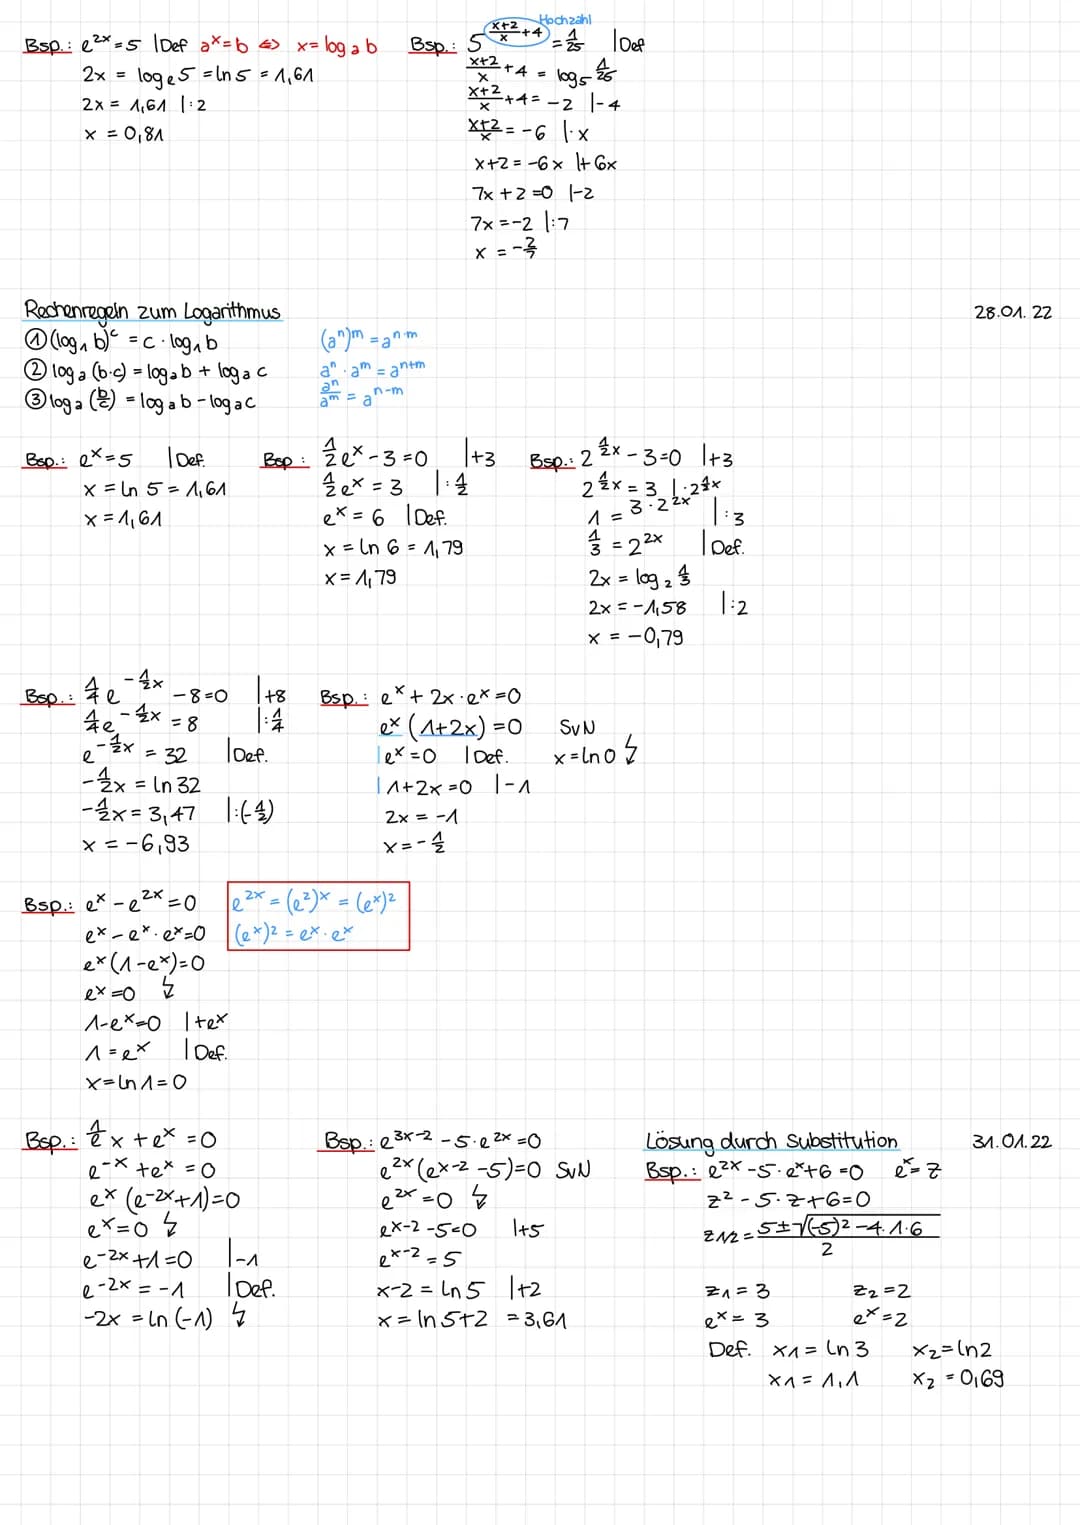 Bsp.: e^{2x} = 5 | Def a^x = b ⇔ x = log_a b
2x = log_e 5 = ln 5 = 1,61
2x = 1,61 |:2
x = 0,81
Hochzahl
Bsp.: 5^{\frac{x+2}{x}+4} = \frac{1}{25} | Def
\frac{x+2}{x} + 4 = log_5 \frac{1}{25}
\frac{x+2}{x} + 4 = -2 |-4
\frac{x+2}{x} = -6 |·x
x+2 = -6x |+6x
7x + 2 = 0 |-2
7x = -2 |:7
x = -\frac{2}{7}
Rechenregeln zum Logarithmus
28.01.22
① (log_1 b)^c = c · log_1 b
(a^n)^m = a^{n·m}
② log_a (b·c) = log_a b + log_a c
a^n · a^m = a^{n+m}
③ log_a (\frac{b}{c}) = log_a b - log_a c
\frac{a^n}{a^m} = a^{n-m}
Bsp.: e^x = 5 | Def.
x = ln 5 = 1,61
x = 1,61
Bsp: \frac{1}{2}e^x - 3 = 0 |+3
\frac{1}{2}e^x = 3 |:\frac{1}{2}
e^x = 6 | Def.
x = ln 6 = 1,79
x = 1,79
Bsp.: 2^{\frac{1}{2}x} - 3 = 0 |+3
2^{\frac{1}{2}x} = 3 |·2^{\frac{1}{2}x}
1 = 3·2^{2x} |:3
\frac{1}{3} = 2^{2x} | Def.
2x = log_2 \frac{1}{3}
2x = -1,58 |:2
x = -0,79
Bsp.: \frac{1}{4}e^{-\frac{1}{2}x} - 8 = 0 |+8
\frac{1}{4}e^{-\frac{1}{2}x} = 8 |:\frac{1}{4}
e^{-\frac{1}{2}x} = 32 | Def.
-\frac{1}{2}x = ln 32
-\frac{1}{2}x = 3,47 |:(-\frac{1}{2})
x = -6,93
Bsp.: e^x + 2x·e^x = 0
e^x (1+2x) = 0 SvN
| e^x = 0 | Def. x = ln 0 ↯
| 1+2x = 0 |-1
2x = -1
x = -\frac{1}{2}
Bsp.: e^x - e^{2x} = 0
e^x - e^x·e^x = 0
e^x (1-e^x) = 0
e^x = 0 ↯
1-e^x = 0 |+e^x
1 = e^x | Def.
x = ln 1 = 0
e^{2x} = (e^2)^x = (e^x)^2
(e^x)^2 = e^x·e^x
Bsp.: \frac{1}{e}x + e^x = 0
e^{-x} + e^x = 0
e^x (e^{-2x}+1) = 0
e^x = 0 ↯
e^{-2x}+1 = 0 |-1
e^{-2x} = -1 | Def.
-2x = ln (-1) ↯
Bsp.: e^{3x-2} - 5·e^{2x} = 0
e^{2x} (e^{x-2} - 5) = 0 SvN
e^{2x} = 0 ↯
e^{x-2} - 5 = 0 |+5
e^{x-2} = 5
x-2 = ln 5 |+2
x = ln 5+2 = 3,61
Lösung durch Substitution
31.01.22
Bsp.: e^{2x} - 5·e^x + 6 = 0 e^x = z
z^2 - 5·z + 6 = 0
z_{1/2} = \frac{5±\sqrt{(-5)^2 - 4·1·6}}{2}
z_1 = 3 z_2 = 2
e^x = 3 e^x = 2
Def. x_1 = ln 3 x_2 = ln 2
x_1 = 1,1 x_2 = 0,69